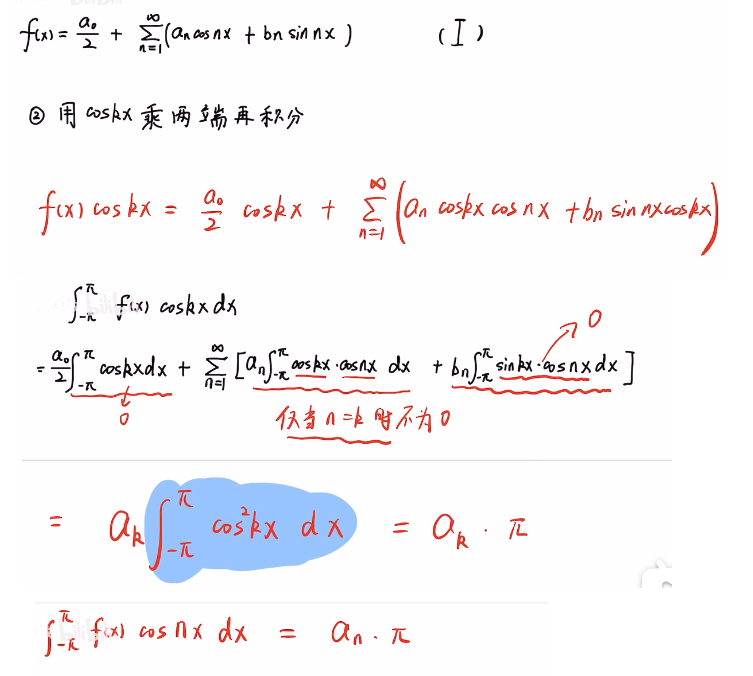 f(x) = a₀/2 + ∑_{n=1}^{∞} (aₙ cos nx + bₙ sin nx) (I)
② 用 coskx 乘两端再积分
f(x) cos kx = a₀/2 cos kx + ∑_{n=1}^{∞} (aₙ cos kx cos nx + bₙ sin nx cos kx)
∫_{-π}^{π} f(x) cos kx dx
= a₀/2 ∫_{-π}^{π} cos kx dx + ∑_{n=1}^{∞} [aₙ ∫_{-π}^{π} cos kx · cos nx dx + bₙ ∫_{-π}^{π} sin kx · cos nx dx] 0
0 仅当 n = k 时不为 0
= a_k ∫_{-π}^{π} cos² kx dx = a_k · π
∫_{-π}^{π} f(x) cos nx dx = aₙ · π